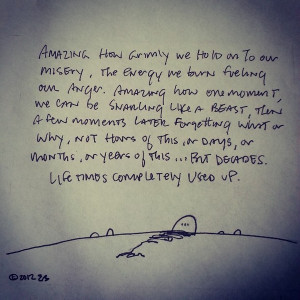 AMAZING HOW GRIMLY WE HOLD ON TO OUR
MISERY, THE ENERGY WE BURN FUELING
OUR ANGER. AMAZING HOW ONE MOMENT,
WE CAN BE SNARLING LIKE A BEAST, THEN
A FEW MOMENTS LATER FORGETTING WHAT OR
WHY, NOT HOURS OF THIS, OR DAYS, OR
MONTHS, OR YEARS OF THIS... BUT DECADES.
LIFETIMES COMPLETELY USED UP.
...
© 2012